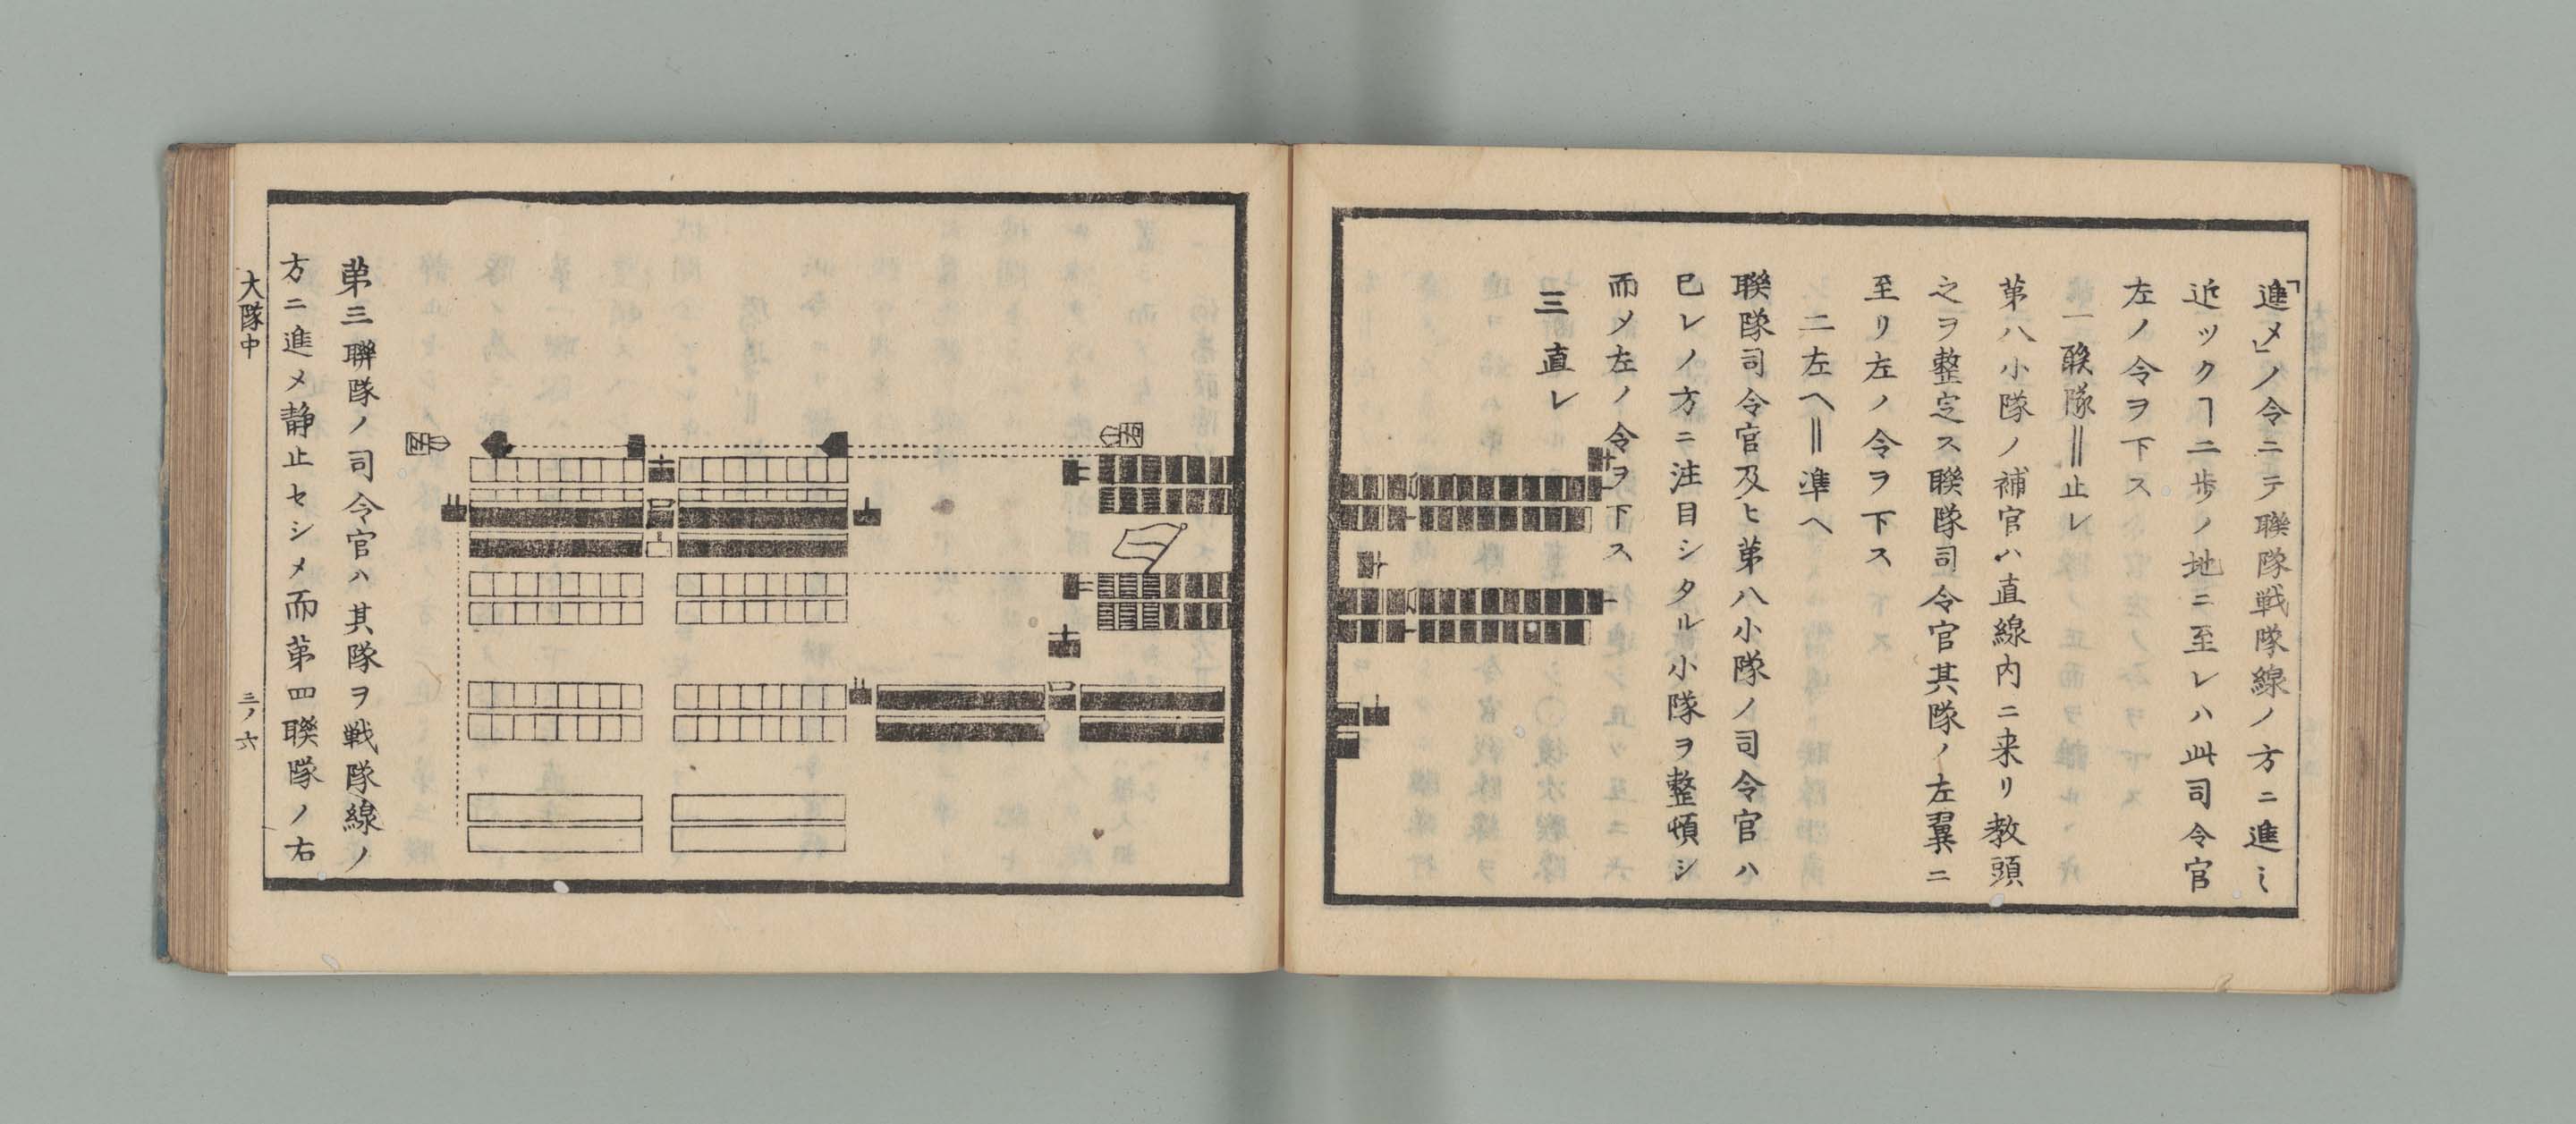 「進メ」ノ令ニテ聯隊戦隊線ノ方ニ進ミ
近ックヿ二歩ノ地ニ至レハ此司令官
左ノ令ヲ下ス
一聯隊‖止レ
第八小隊ノ補官ハ直線内ニ来リ教頭
之ヲ整定ス聯隊司令官其隊ノ左翼ニ
至リ左ノ令ヲ下ス
二左ヘ‖準ヘ
聯隊司令官及ヒ第八小隊ノ司令官ハ
已レノ方ニ注目シタル小隊ヲ整頓シ
而メ左ノ令ヲ下ス
三直レ
第三聯隊ノ司令官ハ其隊ヲ戦隊線ノ
方ニ進メ静止セシメ而第四聯隊ノ右
大隊中
三ノ六